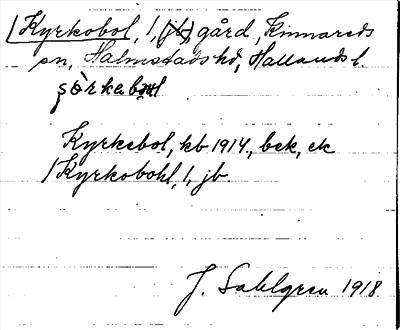 Kyrkobol, 1, (jb) gård, Kinnareds
sn, Halmstads hd, Hallands l.
Kyrkebol, kb 1914, bek, ek
Kyrkobohl, 1, jb.
J. Sahlgren 1918